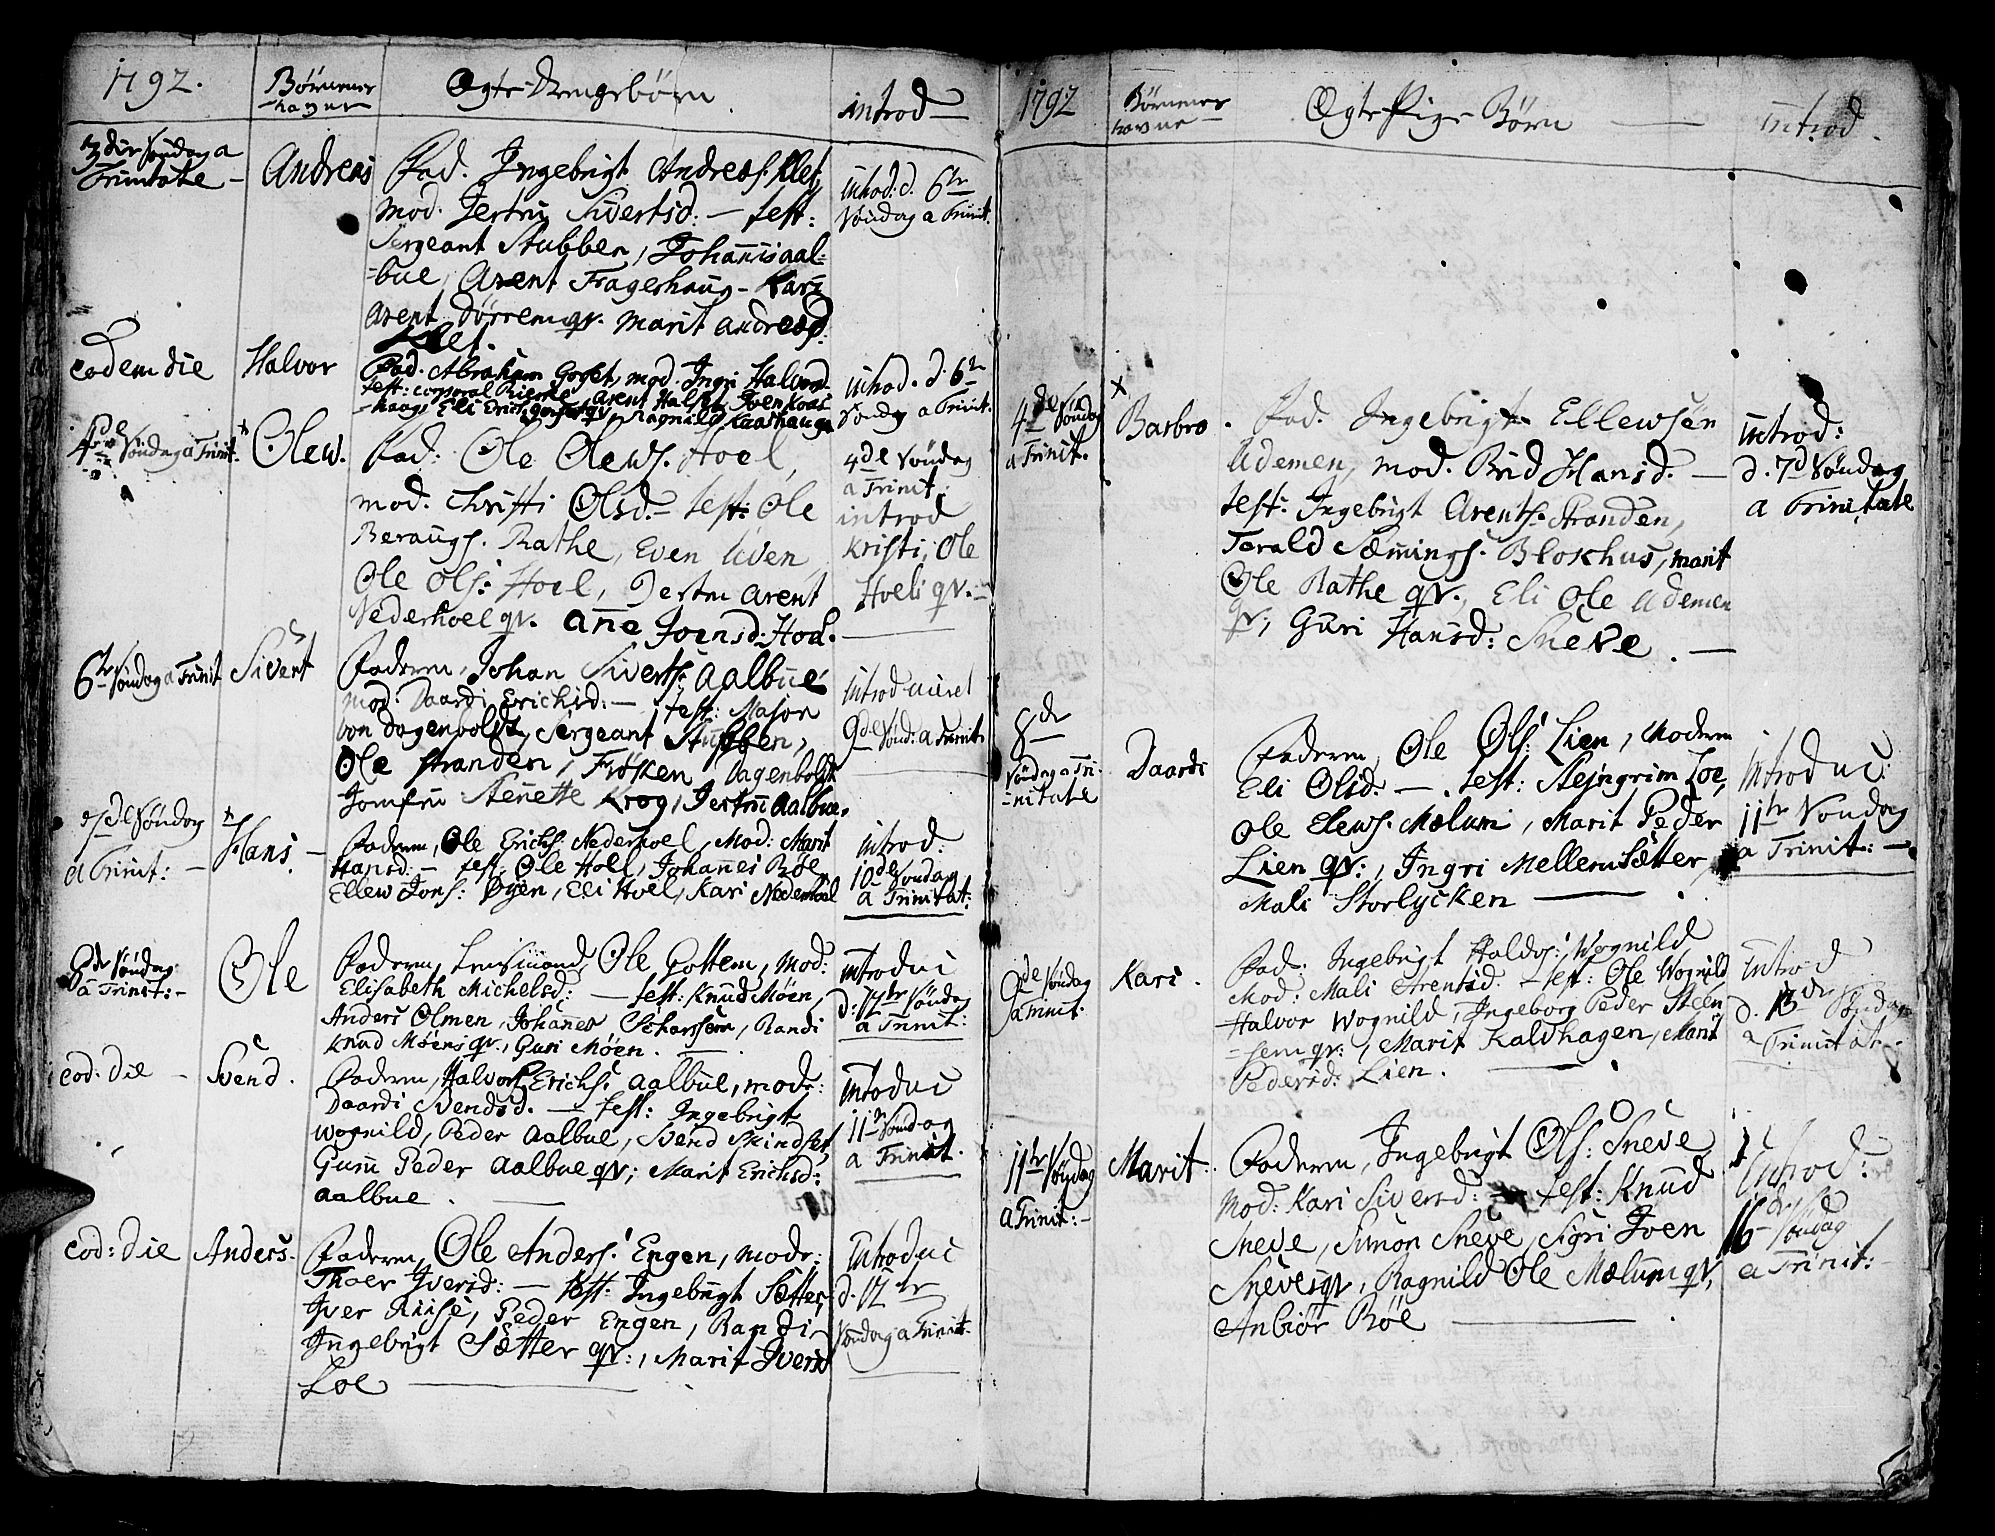 1792.
Børnenes
havne
Ægte Drengebørn.
introd
3die Søndag a
Trinitate
Andreas
Fad. Ingebrigt Andreas. Klet,
mod. Jertru Sivertsd: - test:
Sergeant Stubben, Johannis aal-
-bue, Arent Fragerhaug - Kari
Arent Dørrem qv. Marit Andreæd.
Klet.
introd: d. 6te
Søndag a Trinit.
eodem die
Halvor
Fad. Abraham Gorset, mod. Ingri Halvord.
test: corporal Rierke, Arent Halset, Iven Kaas
-haag, Eli Erich Gorset qv, Ragnild Kaashaugen
introd. d. 6te
Søndag a Trinit.
4de Søndag a Trinit:
Olew.
Fad: Ole Olews. Hoel,
mod. Christi Olsd. - test: Ole
Beraugs. Rathe, Even Uven
Ole Ols: Hoel, Jertru Arent
Nederhoel qv. Anne Joensd: Hoel.
4de Søndag
a Trinit
introd
Kristi, Ole
Hoeli qv. -
6te Søndag a Trinit
Sivert
Faderen, Johan Siverts: Aalbue
mod: Daardi Erichsd: - test: Major
von Dagenboldt, Sergeant Stubben,
Ole Stranden, Frøsken Dagenboldt
Jomfru Stenette Krog, Jertru Aalbue.
Introduceret
9de Sønd: a Trinit.
7de Søndag
a Trinit: -
Hans -
Faderen, Ole Erichs. Nederhoel, Mod: Marit
Hansd. - test: Ole Hoel, Johannes Bøe,
Ellew Jons: Øyen, Eli Hoel, Kari Nederhoel
introd:
10de Søndag
a Trinitat:
8de Søndag
a Trinit: -
Ole
Faderen, Lensmand, Ole Gottem, mod:
Elisabeth Michelsd: - test: Knud Møen,
Anders Olmen, Johannes Scharssem, Randi
Knud Møens qv., Guri Møen.
introduci
d: 12te Søndag
a Trinit:
eod: die -
Svend.
Faderen, Halvor Erichs: Aalbue, modr:
Daardi Svendsd. - test: Ingebrigt
Wognild, Peder Aalbue, Svend Skindset,
Gurru Peder Aalbue qv; Marit Erichsd:
Aalbue.
introduci
11te Søndag
a Trinit.
eod: die
Anders.
Faderen, Ole Anders: Engen, modr:
Thoer Iversd: - test: Ingebrigt Sætter,
Iver Riise, Peder Engen, Randi
Ingebrigt Sætter qv:, Marit Iversd
Loe
Introduci
d. 12te
Søndag a Trinit.
1792
Børnenes
havne
Ægte Pige Børn
introd.
4de Søndag
a Trinit.
Barbro.
Fad. Ingebrigt Ellewsøn
Ademen, mod. Brid Hansd. -
test: Ingebrigt Arents. Stranden,
Torald Sæmings. Blokhus, marit
Ole Rathe qv., Eli Ole Ademen
qv, Guri Hansd: Sneve. -
introd:
d. 7d Søndag
a Trinitate
8de
Søndag a Tri-
-nitate
Daardi
Faderen, Ole Ols: Lien, Moderen
Eli Olsd. - . test: Stejngrim Loe,
Ole Elews. Mælum, Marit Peder
Lien qv:, Ingri Mellemsætter,
Mali Storlycken
Introduci:
11te Søndag
a Trinit: -
9de Søndag
a Trinit.
Kari.
Fad. Ingebrigt Haldos: Wognild
Mod: Mali Arentsd. - test: Ole Wognild
Halvor Wognild, Ingeborg Peder Steen
-sem qv:, Marit Kaldhagen, Marit
Pedersd: Lien.
introd
d. 13de Søndag
a Trinitat.
11te Søndag
a Trinit: -
Marit.
Faderen, Ingebrigt Ols: Sneve
Mod: Kari Siversd: - test: Knud
Sneve, Simon Sneve, Sigri Iven
Sneves qv, Ragnild Ole Mælum qv,
Anbiør Bøe
Introd:
16de Søndag
a Trinit: